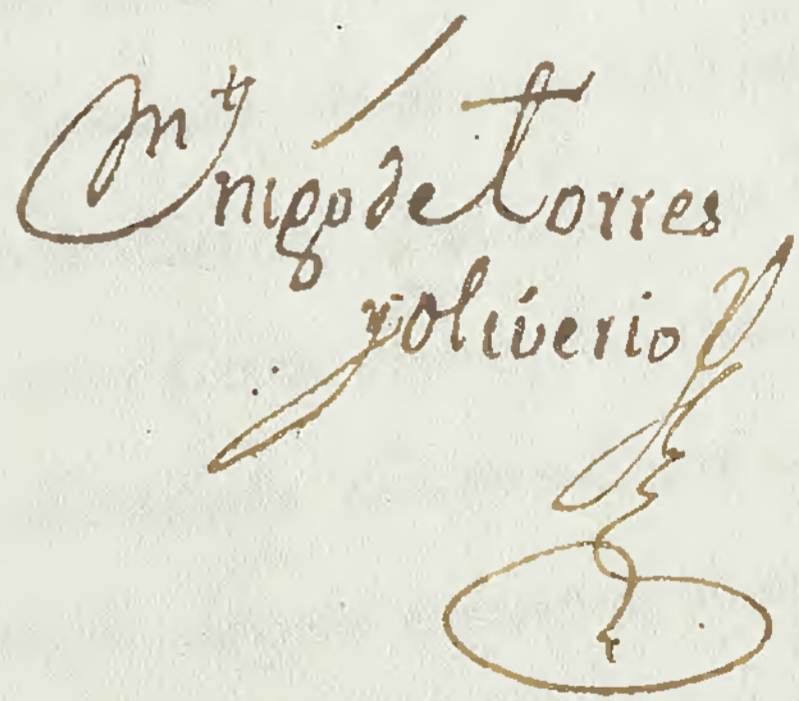 Ynigo de Torres
y Oliverio